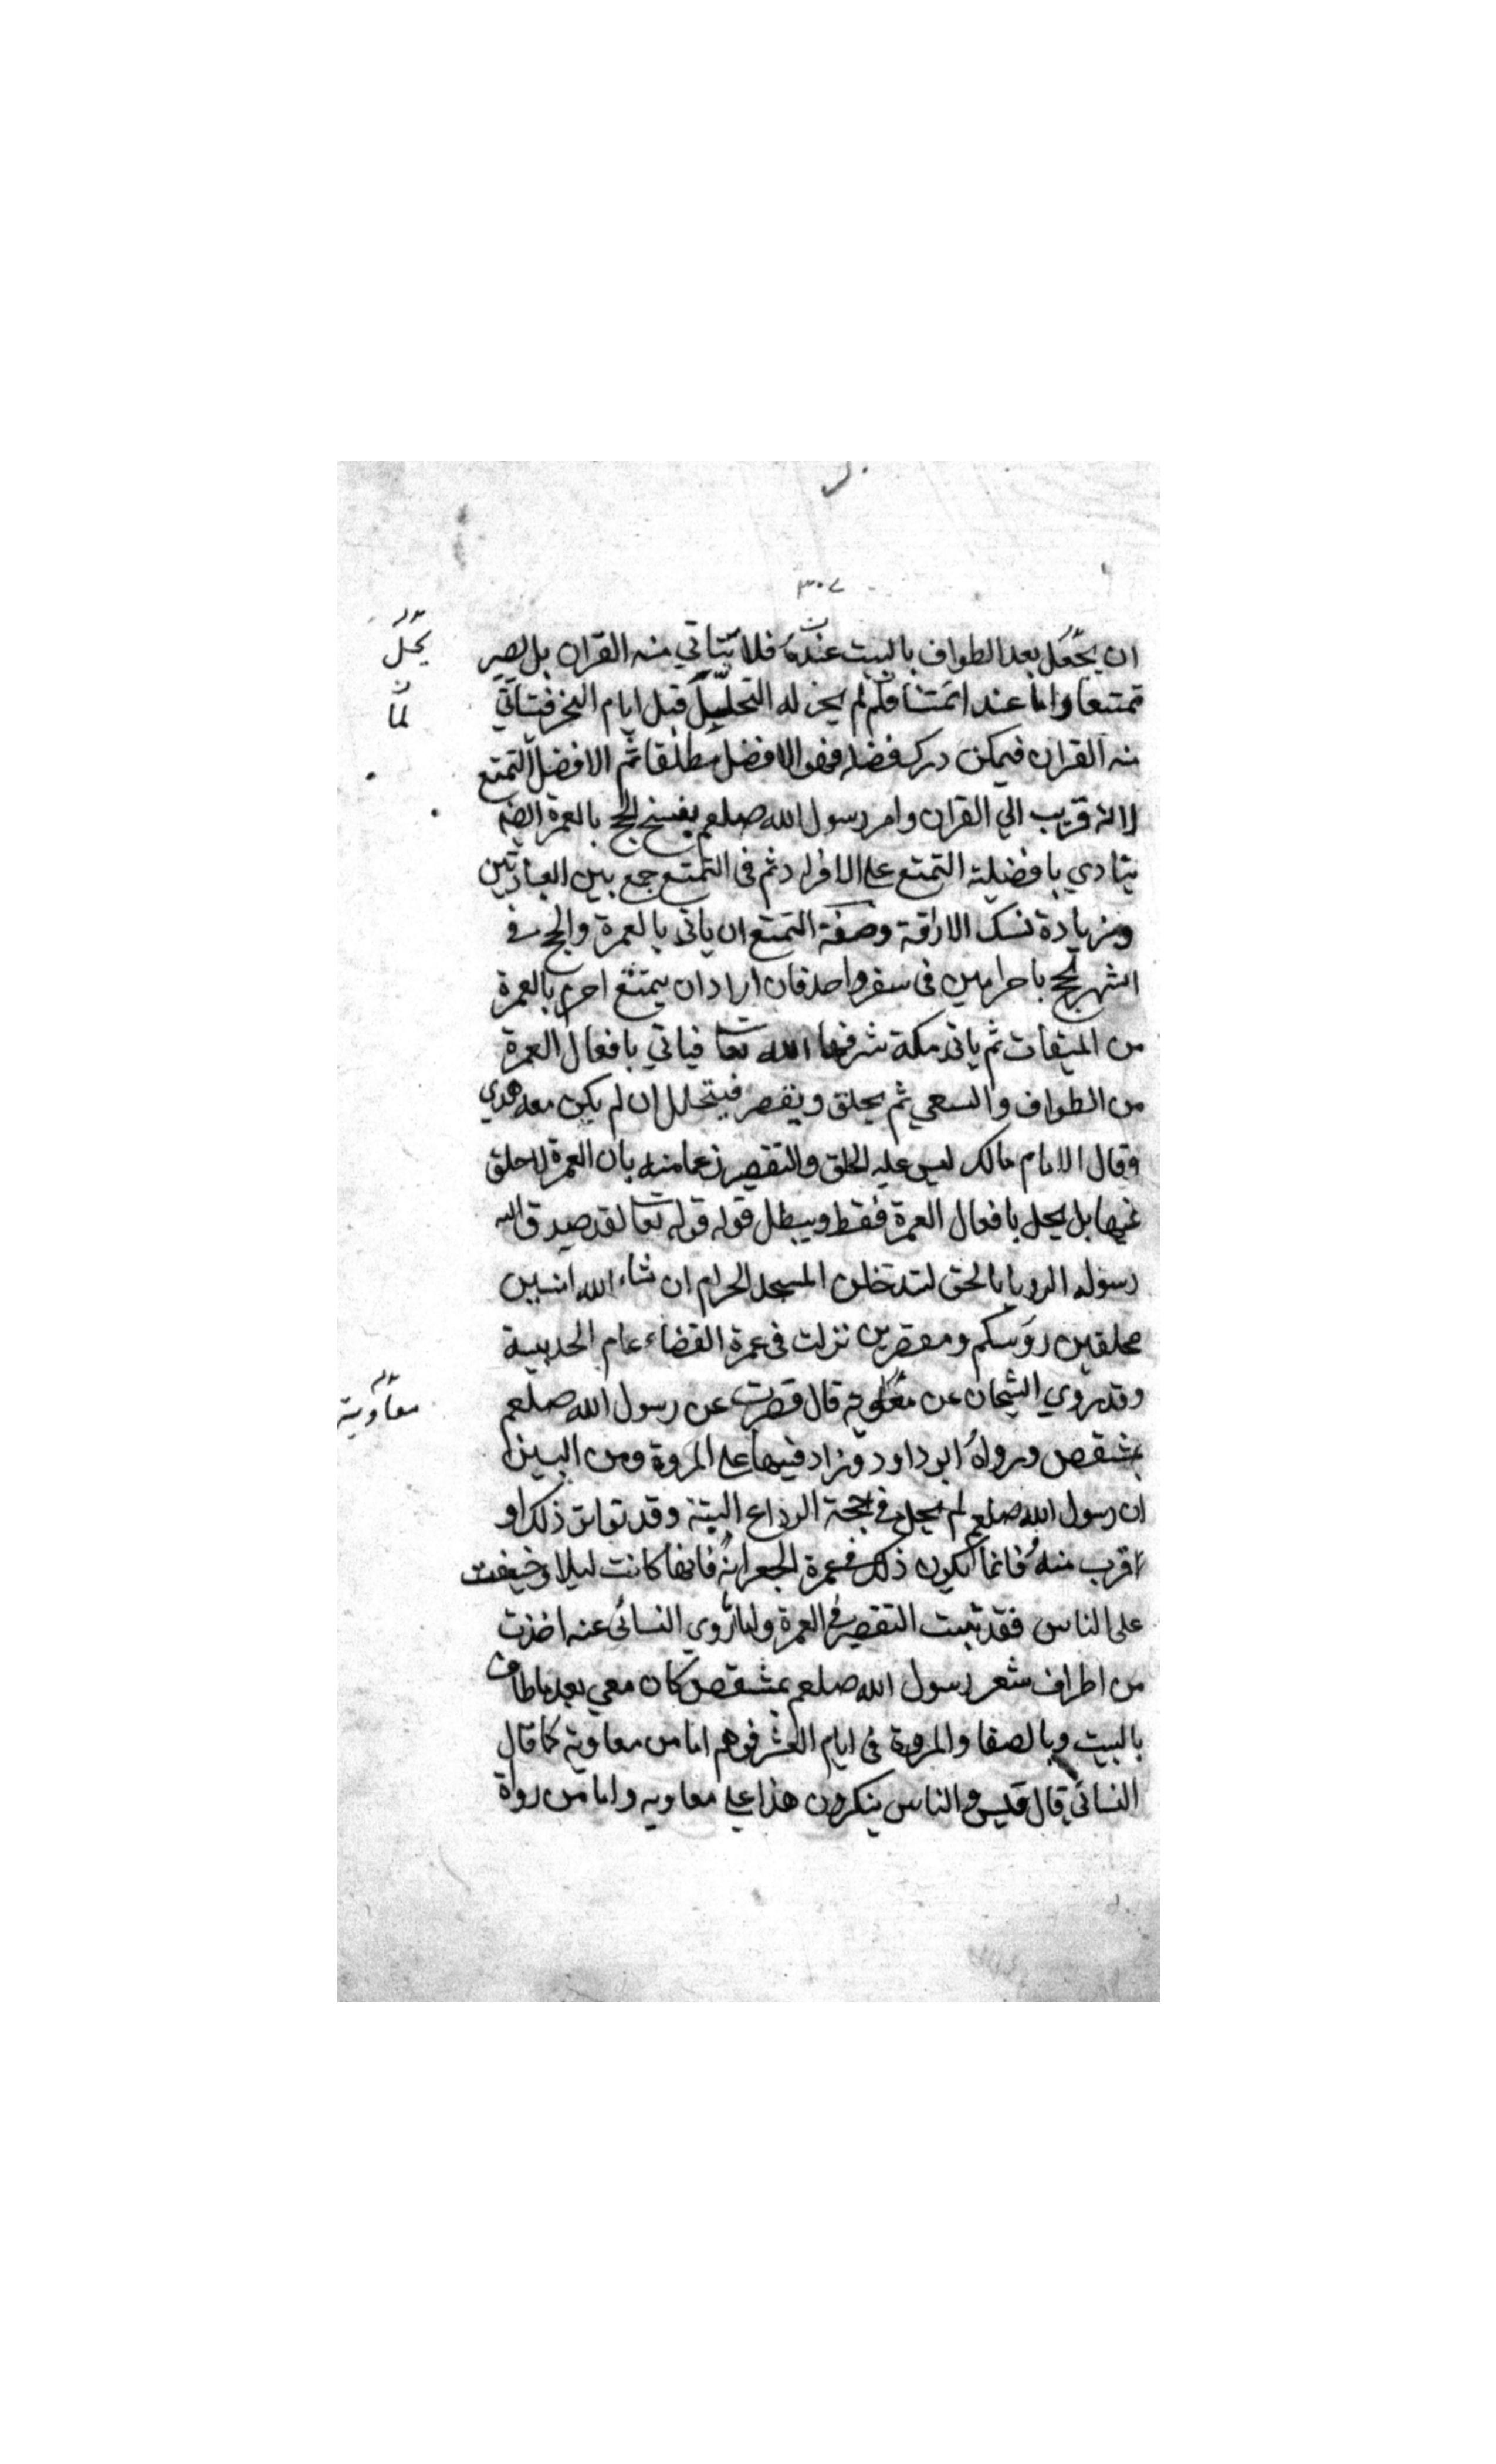 ٣٠٧
ان يجعل بعد الطواف بالبيت عنده فلا يتاتي منه القران بل يصير
يحل
تمتعا واما عند ائمتنا فلم لم يجز له التحليل قبل ايام النحر فيتاتي
لما
منه القران فيمكن درك فضله فهو الافضل مطلقا ثم الافضل التمتع
لانه قريب الي القران وامر رسول الله صلعم بفسخ الحج بالعمرة ايضا
يتادي بافضلية التمتع علي الافراد ثم في التمتع جمع بين العبادتين
وزيادة نسك الاراقة وصفة التمتع ان ياتي بالعمرة والحج في
اشهر الحج باحرامين في سفر واحد فان اراد ان يتمتع احرم بالعمرة
من الميقات ثم ياتي مكة شرفها الله تعا فياتي بافعال العمرة
من الطواف والسعي ثم يحلق ويقصر فيتحلل ان لم يكن معه هدي
وقال الامام مالك ليس عليه الحلق والتقصير زعما منه بان العمرة لا حلق
فيها بل يحل بافعال العمرة فقط ويبطل قوله قوله تعا لقد صدق الله
رسوله الرويا بالحق لتدخلن المسجد الحرام ان شاء الله امنين
محلقين روسكم ومقصرين نزلت في عمرة القضاء عام الحديبية
وقد روي الشيخان عن معاوية قال قصرت عن رسول الله صلعم
معاوية
بمشقص ورواه ابو داود وزاد فيها علي المروة ومن البين
ان رسول الله صلعم لم يحل في حجة الوداع البتة وقد تواتر ذلك او
اقرب منه فانما يكون ذلك في عمرة الجعرانة فانها كانت ليلا وخفيت
على الناس فقد ثبت التقصير في العمرة ولما روي النسائي عنه اخذت
من اطراف شعر رسول الله صلعم بمشقص كان معي بعد ما طاف
بالبيت وبالصفا والمروة في ايام العشر فوهم اما من معاوية كما قال
النسائي قال قيس والناس ينكرون هذا علي معاويه واما من رواة